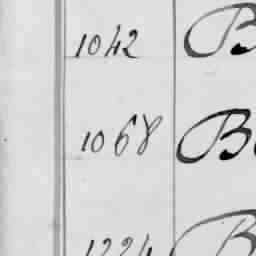 1042 B
1068 B
1224 B